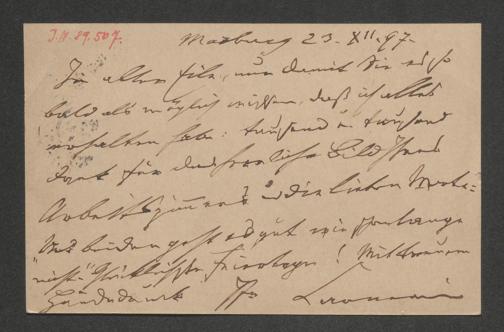 I.N. 89.507.
Marburg 23. XII. 97.
In aller Eile, nur damit Sie es so
bald als möglich wissen, daß ich alles
erhalten habe: tausend u. tausend
Dank für das herrliche Bild Ihres
Arbeitszimmers u. die lieben Worte.
Uns beiden geht es gut wie schon lange
nicht. Glücklichste Feiertage! Mit treuem
Händedruck Ihr